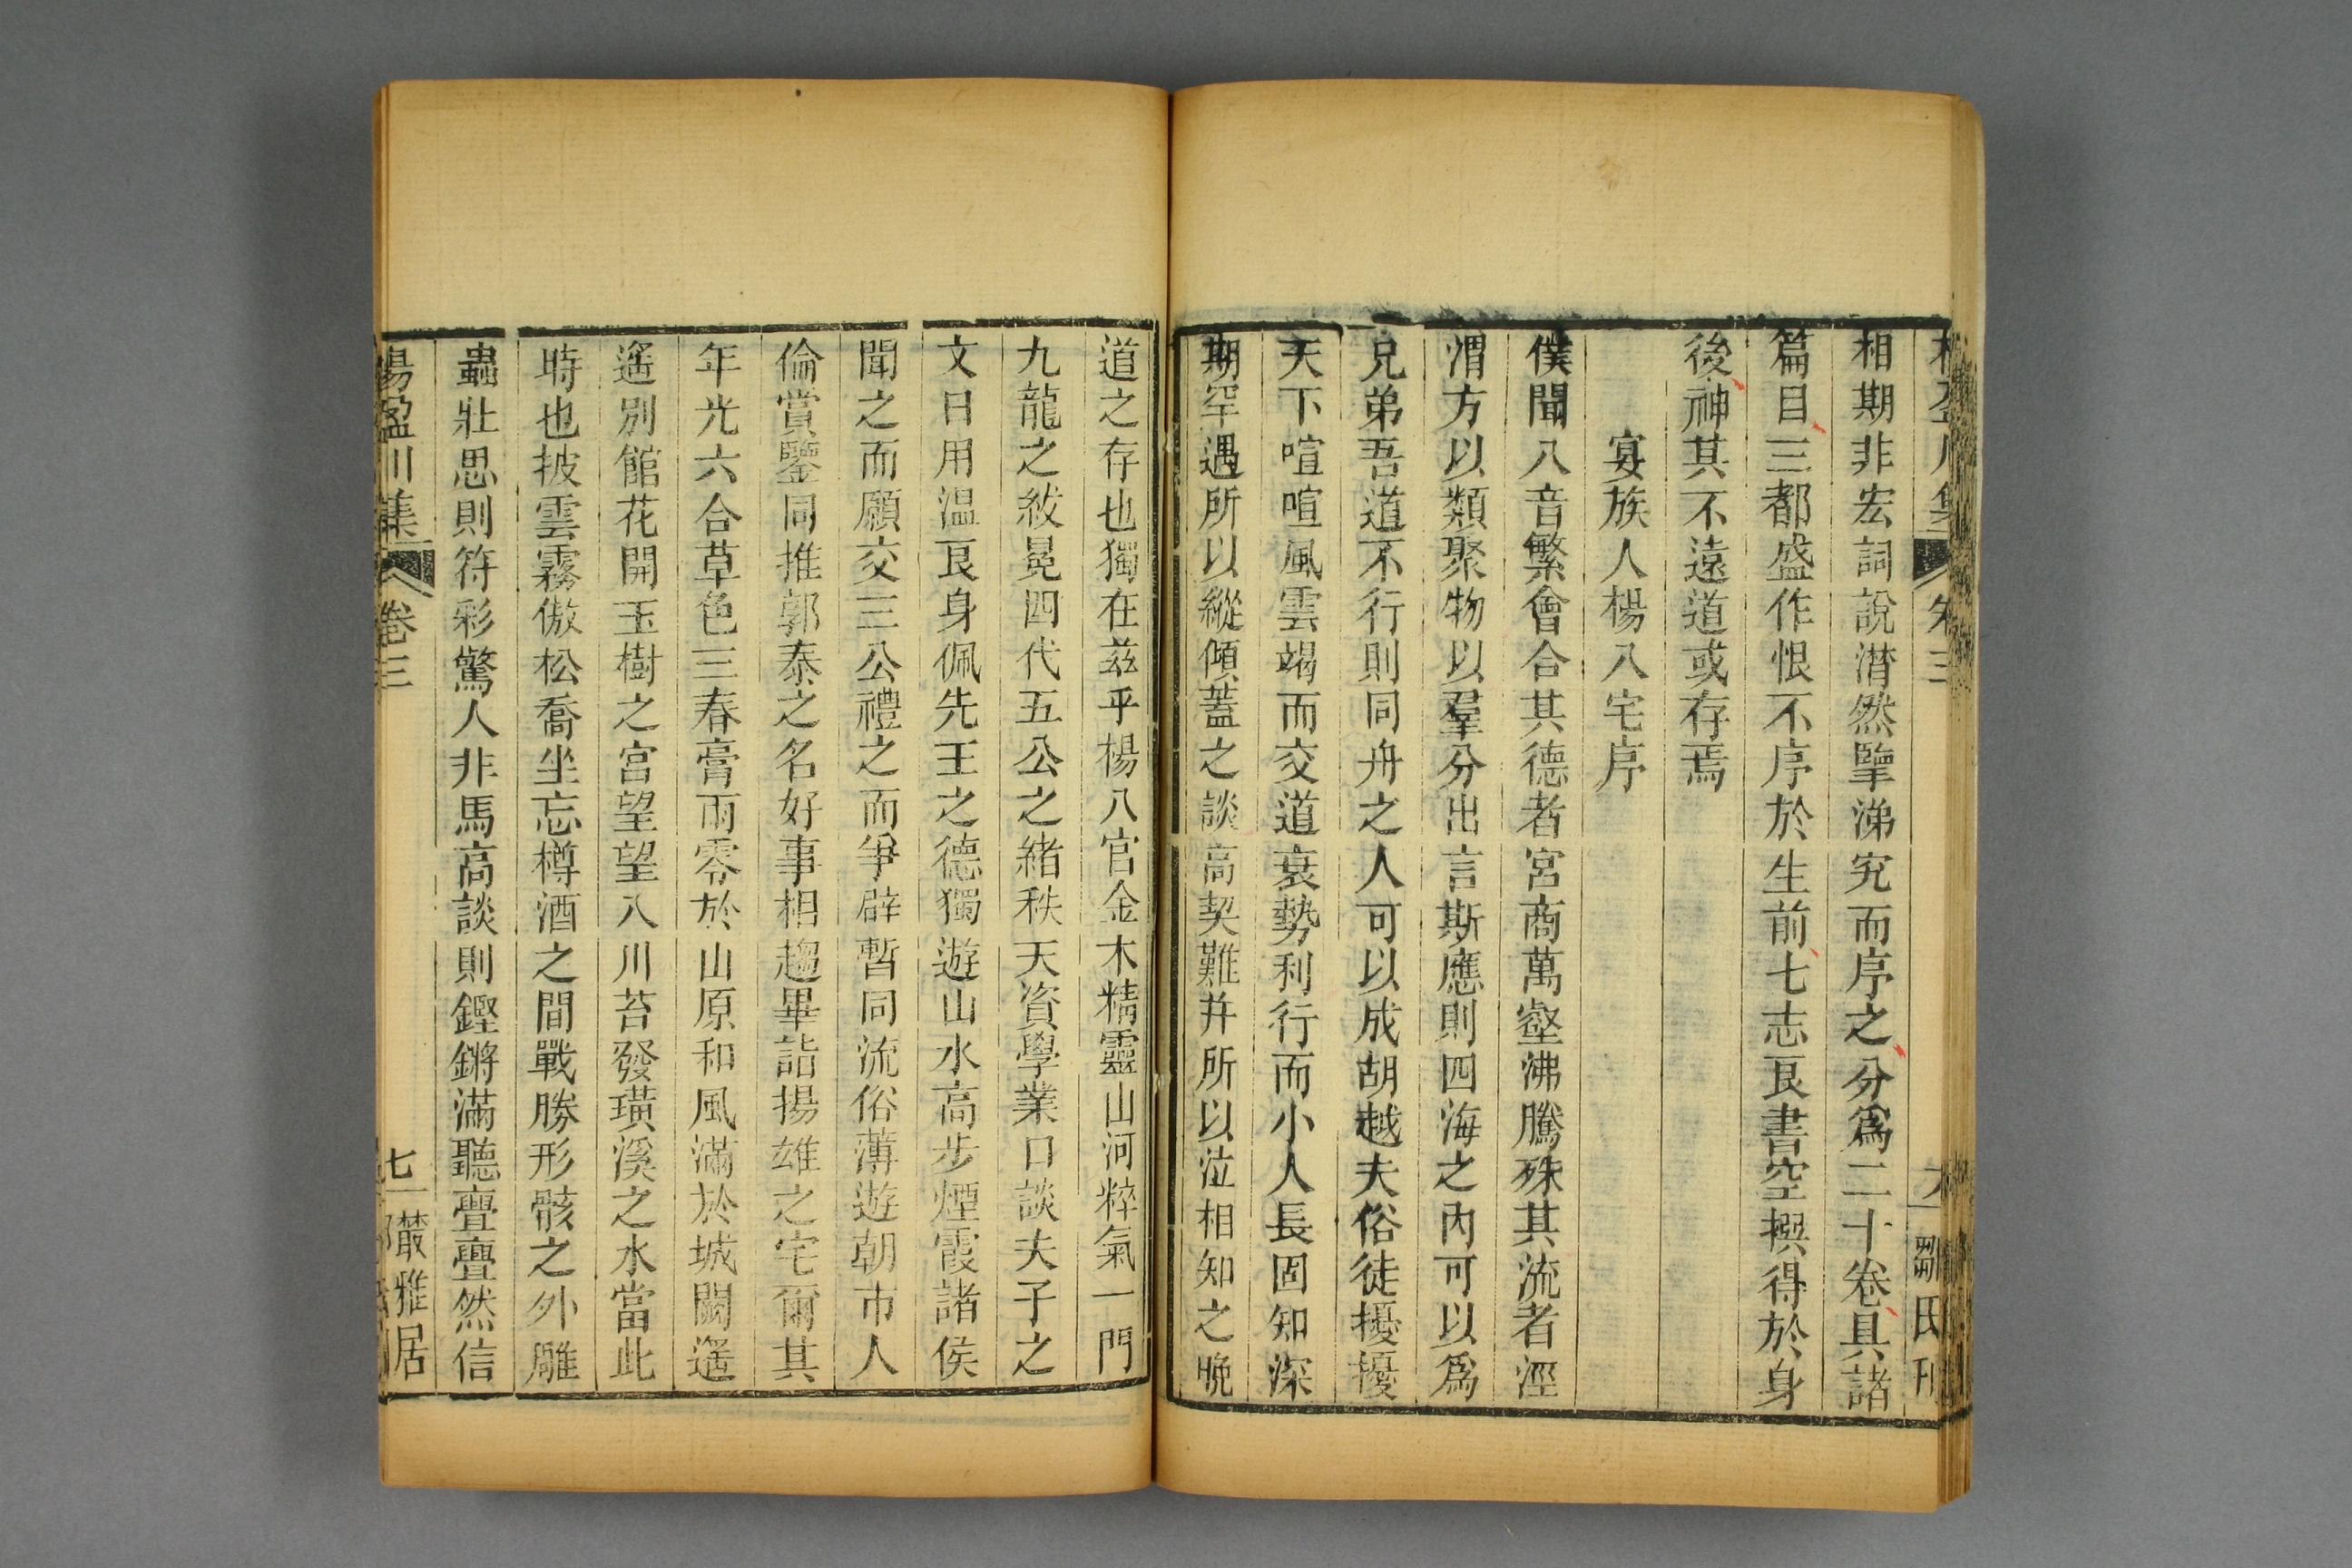 相期非宏詞說潸然擥涕究而序之分爲二十卷具諸
篇目三都盛作恨不序於生前七志良書空撰得於身
後神其不遠道或存焉
宴族人楊八宅序
僕聞八音繁會合其德者宮商萬壑沸騰殊其流者涇
渭方以類聚物以羣分出言斯應則四海之內可以爲
兄弟吾道不行則同舟之人可以成胡越夫俗徒擾擾
天下喧喧風雲竭而交道衰勢利行而小人長固知深
期罕遇所以縱傾蓋之談高契難并所以泣相知之晚
道之存也獨在茲乎楊八官金木精靈山河粹氣一門
九龍之紱冕四代五公之緒秩天資學業口談夫子之
文日用溫良身佩先王之德獨遊山水高步煙霞諸侯
聞之而願交三公禮之而爭辟暫同流俗薄遊朝市人
倫賞鑒同推郭泰之名好事相趨畢詣揚雄之宅爾其
年光六合草色三春膏雨零於山原和風滿於城闕遙
遙別館花開玉樹之宮望望八川苔發璜溪之水當此
時也披雲霧傲松喬坐忘樽酒之間戰勝形骸之外雕
蟲壯思則符彩驚人非馬高談則鏗鏘滿聽亹亹然信
楊盈川集 卷三 七 叢雅居